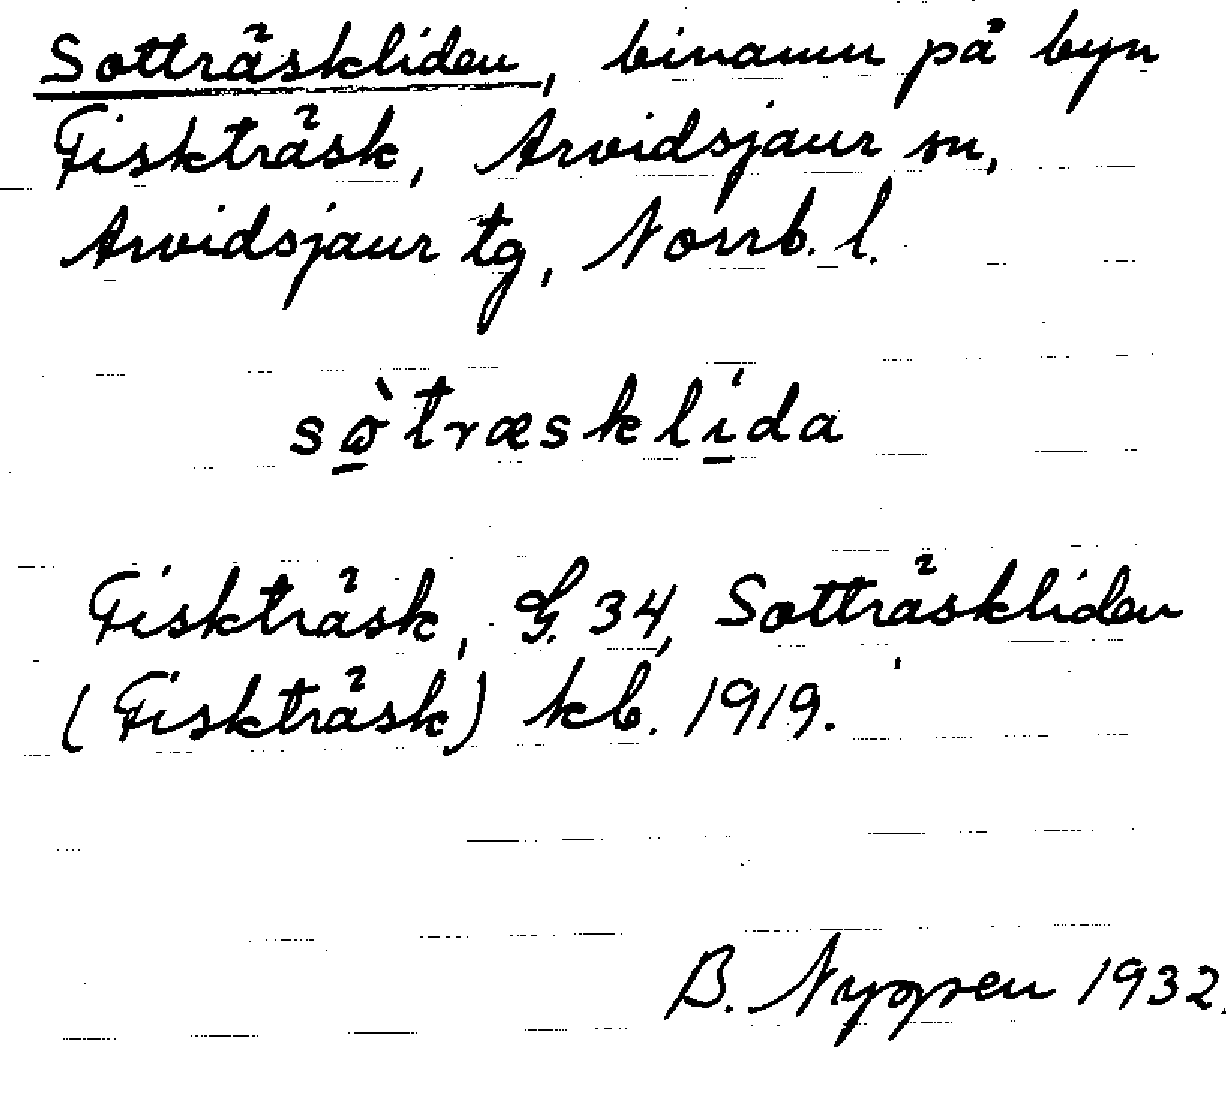 Sotträskliden, binamn på byn
Fiskträsk, Arvidsjaur sn,
Arvidsjaur tg, Norrb. l.
sò̱træsklí̱da
Fiskträsk, G. 34, Sotträskliden
(Fiskträsk) kb. 1919.
B. Nygren 1932.